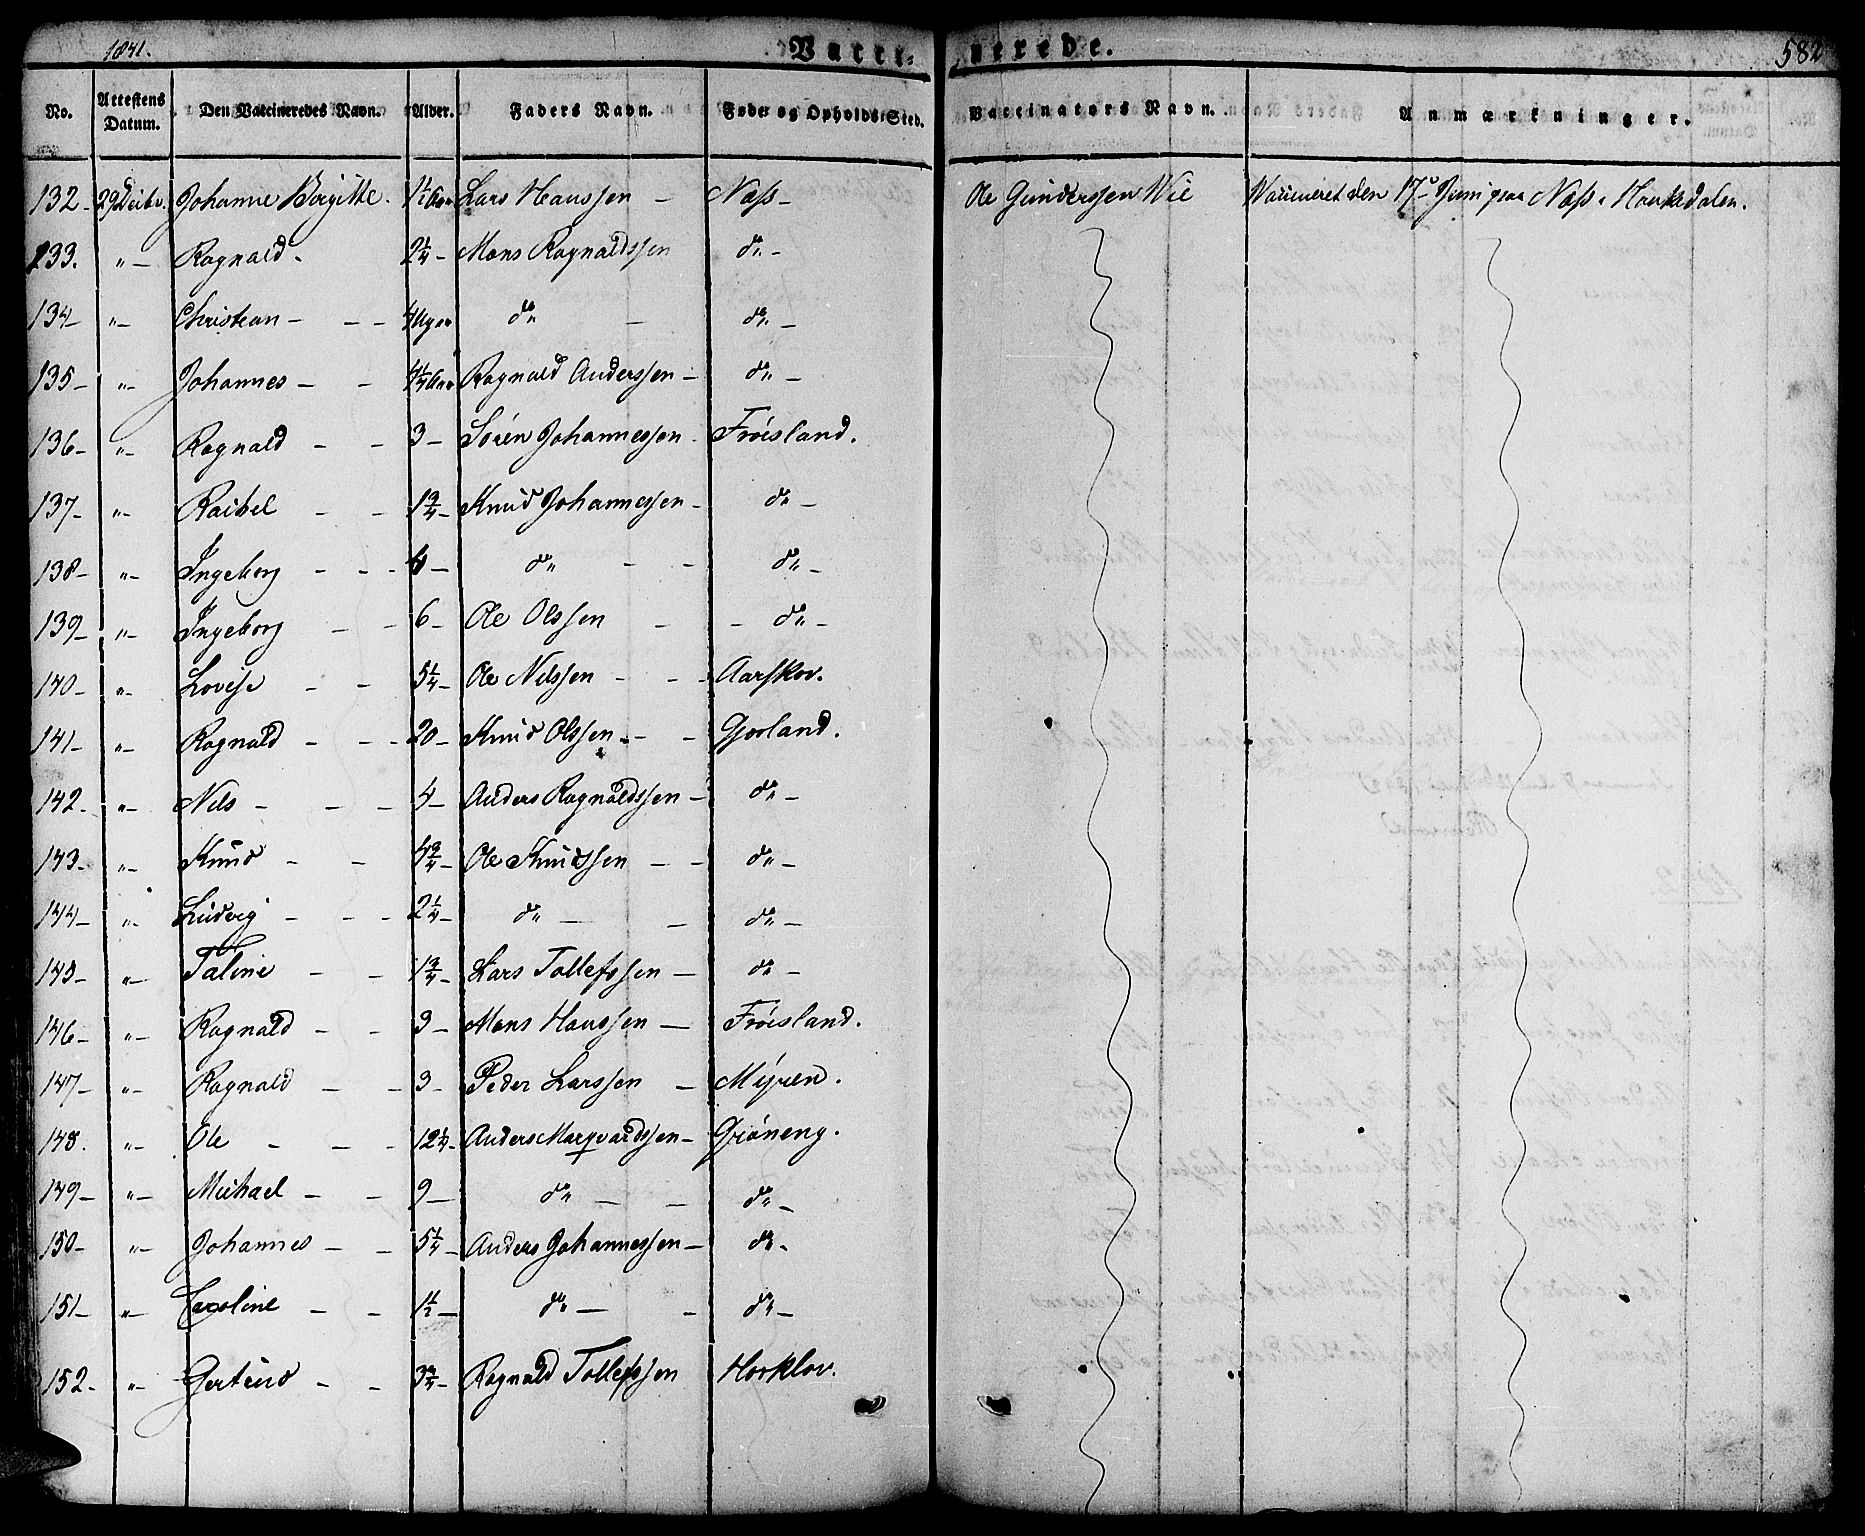 1841. Vacci- nerede. 582
No. Attestens Datum. Den Vaccineredes Navn. Alder. Faders Navn. Føde- og Opholds-Sted. Vaccinators Navn. Anmærkninger.
132- 29 Decbr. Johanne Birgitte. 1½ Aar Lars Hanssen - Næss - Ole Gunderssen Wie Vaccineret den 17de Juni paa Næss i Haukedalen.
133. "- Ragnald - 2¼- Mons Ragnaldssen do -
134- "- Christian - - - 4 Uger do - do -
135- "- Johannes - - 4¼ Aar Ragnald Anderssen - do -
136- "- Ragnald - - 3- Sören Johannessen - Fröisland.
137- "- Raibel - - 1¾ Knud Johannessen - do -
138- "- Ingeborg - - - 4- do - - do -
139- "- Ingeborg - - 6- Ole Olssen - - do -
140- "- Lovise - - 5¼- Ole Nilssen - - - Aarskov.
141- "- Ragnald - - - 20- Knud Olssen - - Gjorland.
142- "- Nils - - - 4- Anders Ragnaldssen - do -
143- "- Knud - - 4¾- Ole Knudssen - - do -
144- "- Ludvig - - - 2¼- do - - do -
145- "- Taline - - 1¾- Lars Tollefssen - do -
146- "- Ragnald - - 3- Mons Hanssen - Fröisland.
147- "- Ragnald - - 3- Peder Larssen - Myren.
148. "- Ole - - - 12¼- Anders Marqvardssen - Gröneng.
149- "- Michael - - 9- do - - do -
150- "- Johannes - - 5¼- Anders Johannessen - do -
151- "- Caroline - - 1½- do - - do -
152- "- Gertrud - - 3¾- Ragnald Tollefssen Horklov.